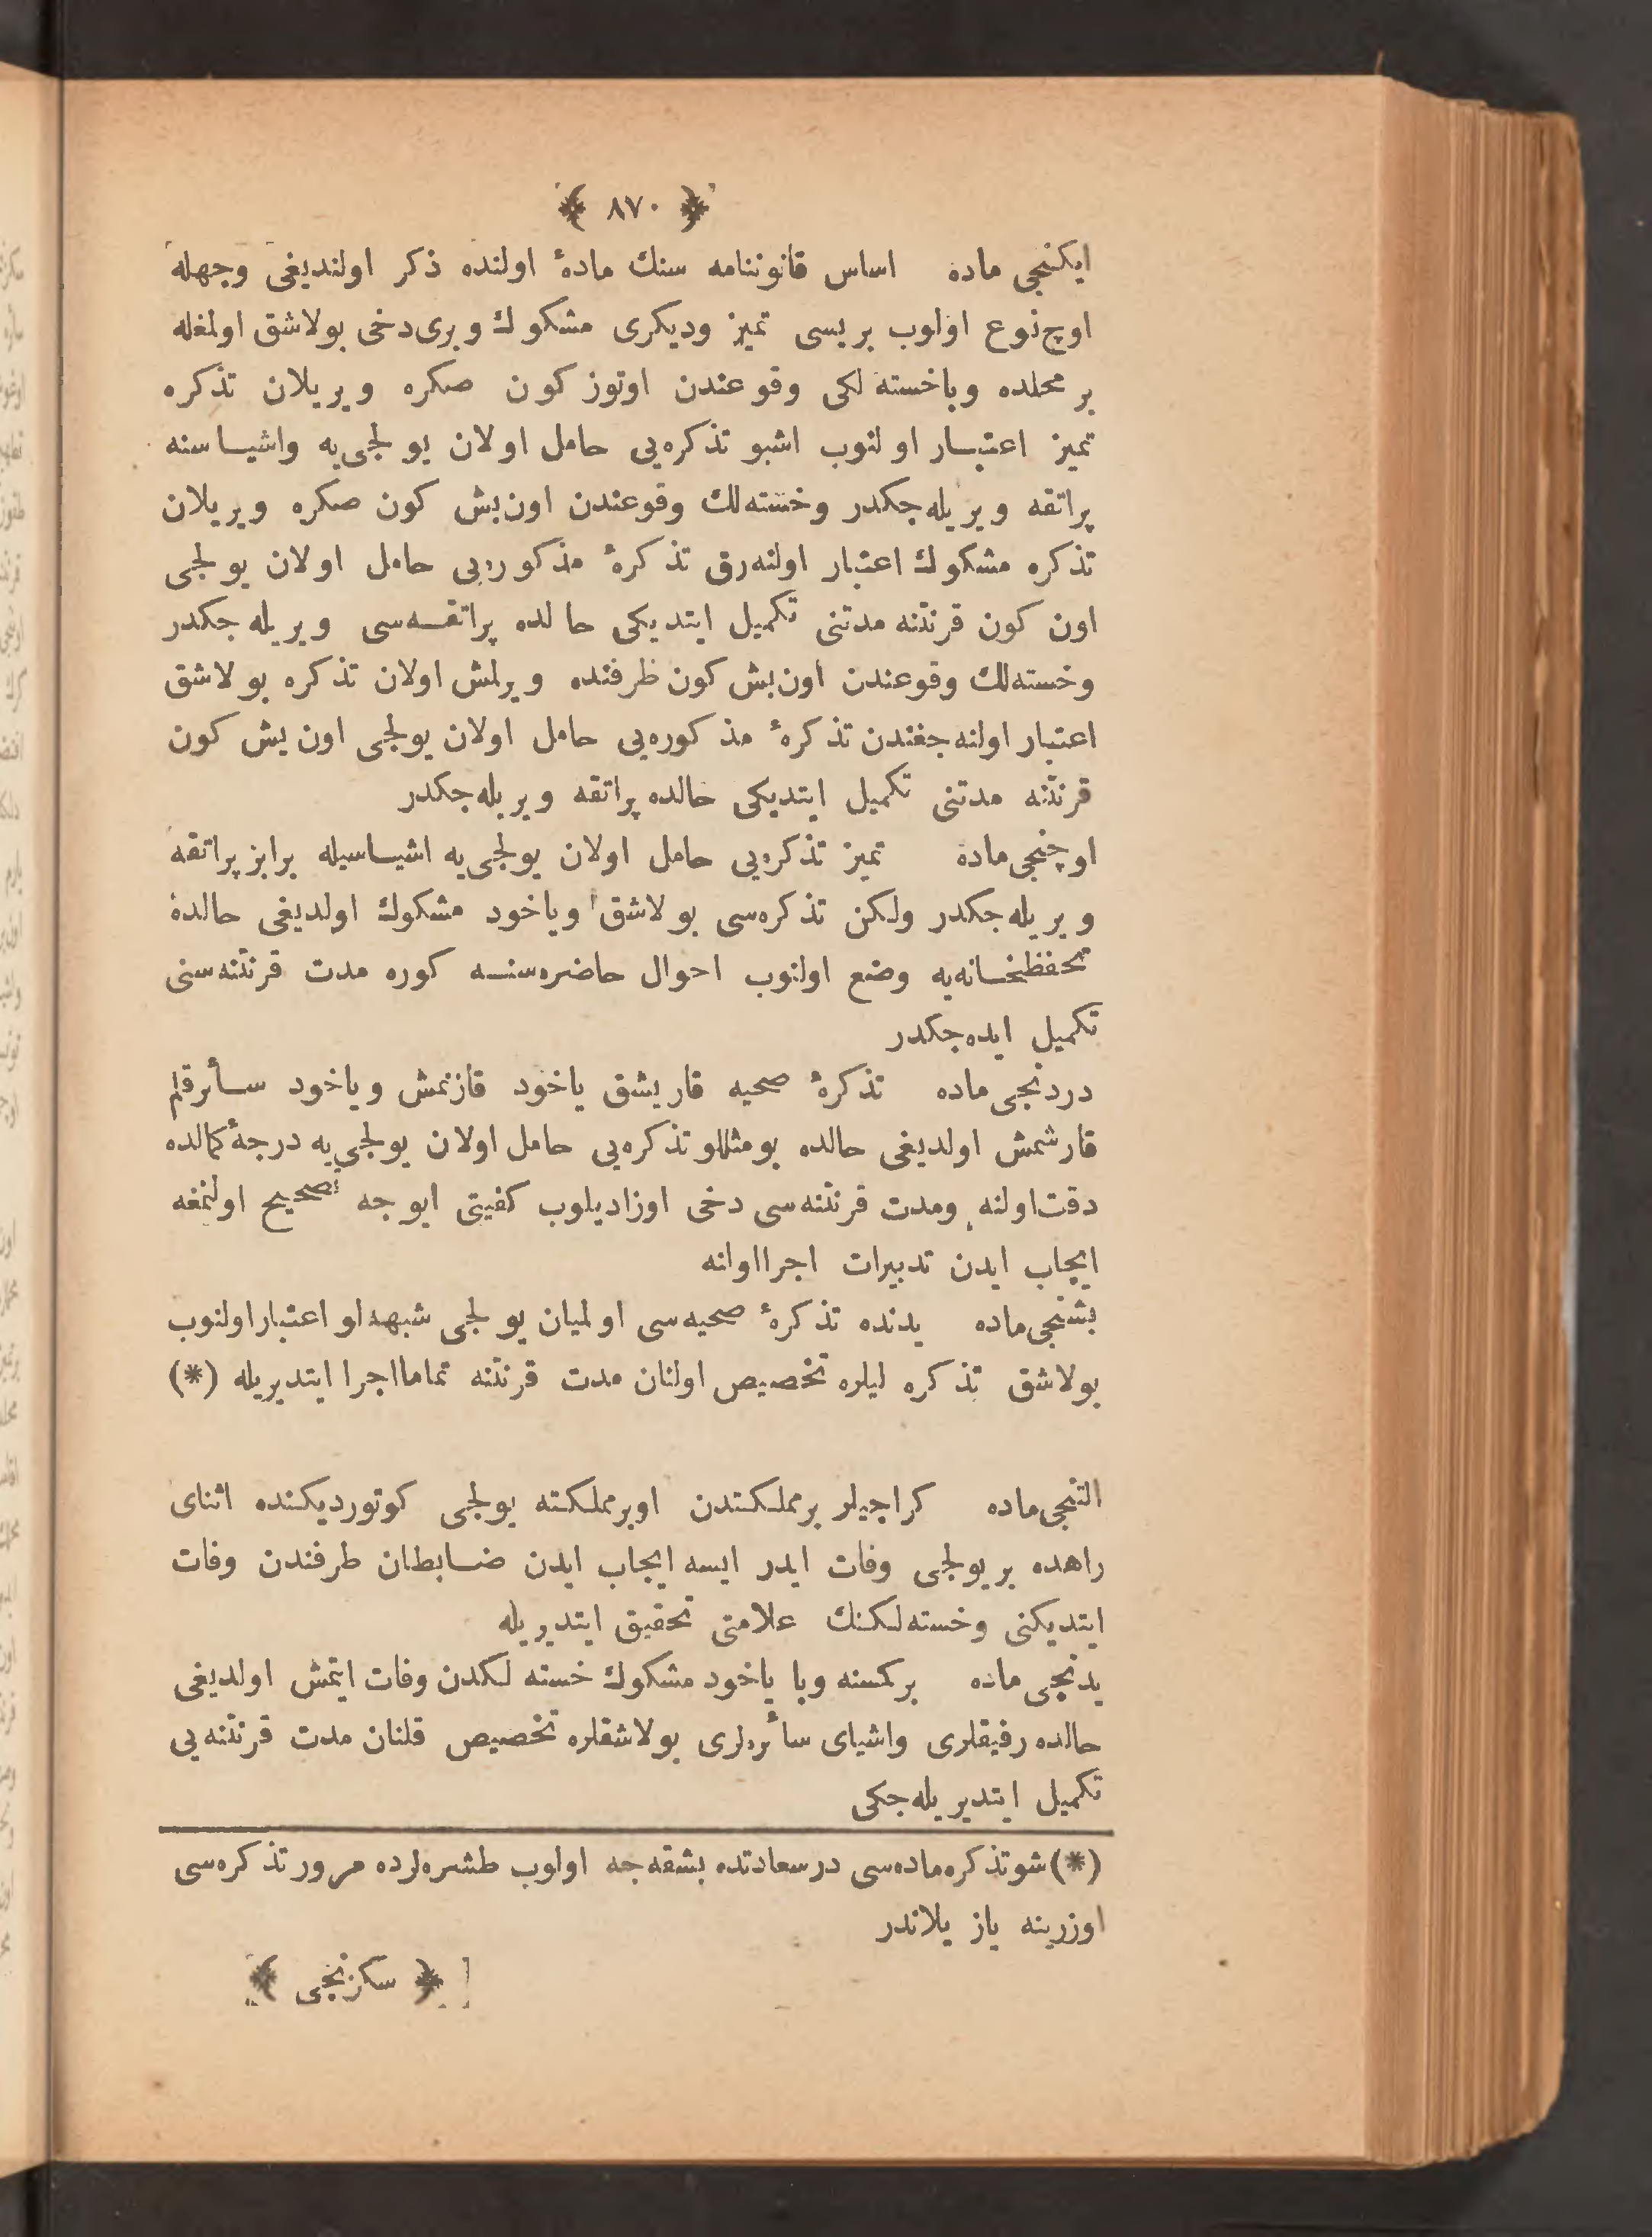 ﴿ ٨٧٠ ﴾
ایكنجی ماده اساس قانوننامه سنك مادۀ اولنده ذكر اولندیغی وجهله
اوچ‌نوع اولوب بریسی تمیز ودیكری مشكوك وبری‌دخی بولاشق اولمغله
بر محلده وباخسته‌لكی وقوعندن اوتوز كون صكره ویریلان تذكره
تمیز اعتبار اولنوب اشبو تذكره‌یی حامل اولان یولجی‌یه واشیاسنه
پراتقه ویریله‌جكدر وخسته‌لك وقوعندن اون‌بش كون صكره ویریلان
تذكره مشكوك اعتبار اولنه‌رق تذكرۀ مذكوره‌یی حامل اولان یولجی
اون كون قرنتنه مدتنی تكمیل ایتدیكی حالده پراتقه‌سی ویریله‌جكدر
وخسته‌لك وقوعندن اون‌بش كون ظرفنده ویرلمش اولان تذكره بولاشق
اعتبار اولنه‌جغندن تذكرۀ مذكوره‌یی حامل اولان یولجی اون بش كون
قرنتنه مدتنی تكمیل ایتدیكی حالده پراتقه ویریله‌جكدر
اوچنجی‌ماده تمیز تذكره‌یی حامل اولان یولجی‌یه اشیاسیله برابر پراتقه
ویریله‌جكدر ولكن تذكره‌سی بولاشق ویاخود مشكوك اولدیغی حالده
تحفظخانه‌یه وضع اولنوب احوال حاضره‌سنه كوره مدت قرنتنه‌سنی
تكمیل ایده‌جكدر
دردنجی‌ماده تذكرۀ صحیه قاریشق یاخود قازنمش ویاخود سائرقلم
قارشمش اولدیغی حالده بومثللو تذكره‌یی حامل اولان یولجی‌یه درجۀ كمالده
دقت‌اولنه ومدت قرنتنه‌سی دخی اوزادیلوب كفیتی ایوجه تصحیح اولنمغه
ایجاب ایدن تدبیرات اجرااولنه
بشنجی‌ماده یدنده تذكرۀ صحیه‌سی اولمیان یولجی شبهه‌لو اعتباراولنوب
بولاشق تذكره لیلره تخصیص اولنان مدت قرنتنه تمامااجرا ایتدیریله (*)
التنجی‌ماده كراجیلر برمملكتدن اوبرمملكته یولجی كوتوردیكنده اثنای
راهده بریولجی وفات ایدر ایسه ایجاب ایدن ضابطان طرفندن وفات
ایتدیكنی وخسته‌لكنك علامتی تحقیق ایتدیریله
یدنجی‌ماده بركمسنه وبا یاخود مشكوك خسته‌لكدن وفات ایتمش اولدیغی
حالده رفیقلری واشیای سائره‌لری بولاشقلره تخصیص قلنان مدت قرنتنه‌یی
تكمیل ایتدیریله‌جكی
(*) شوتذكره‌ماده‌سی درسعادتده بشقه‌جه اولوب طشره‌لرده مرورتذكره‌سی
اوزرینه یازیلاندر
﴿ سكزنجی ﴾